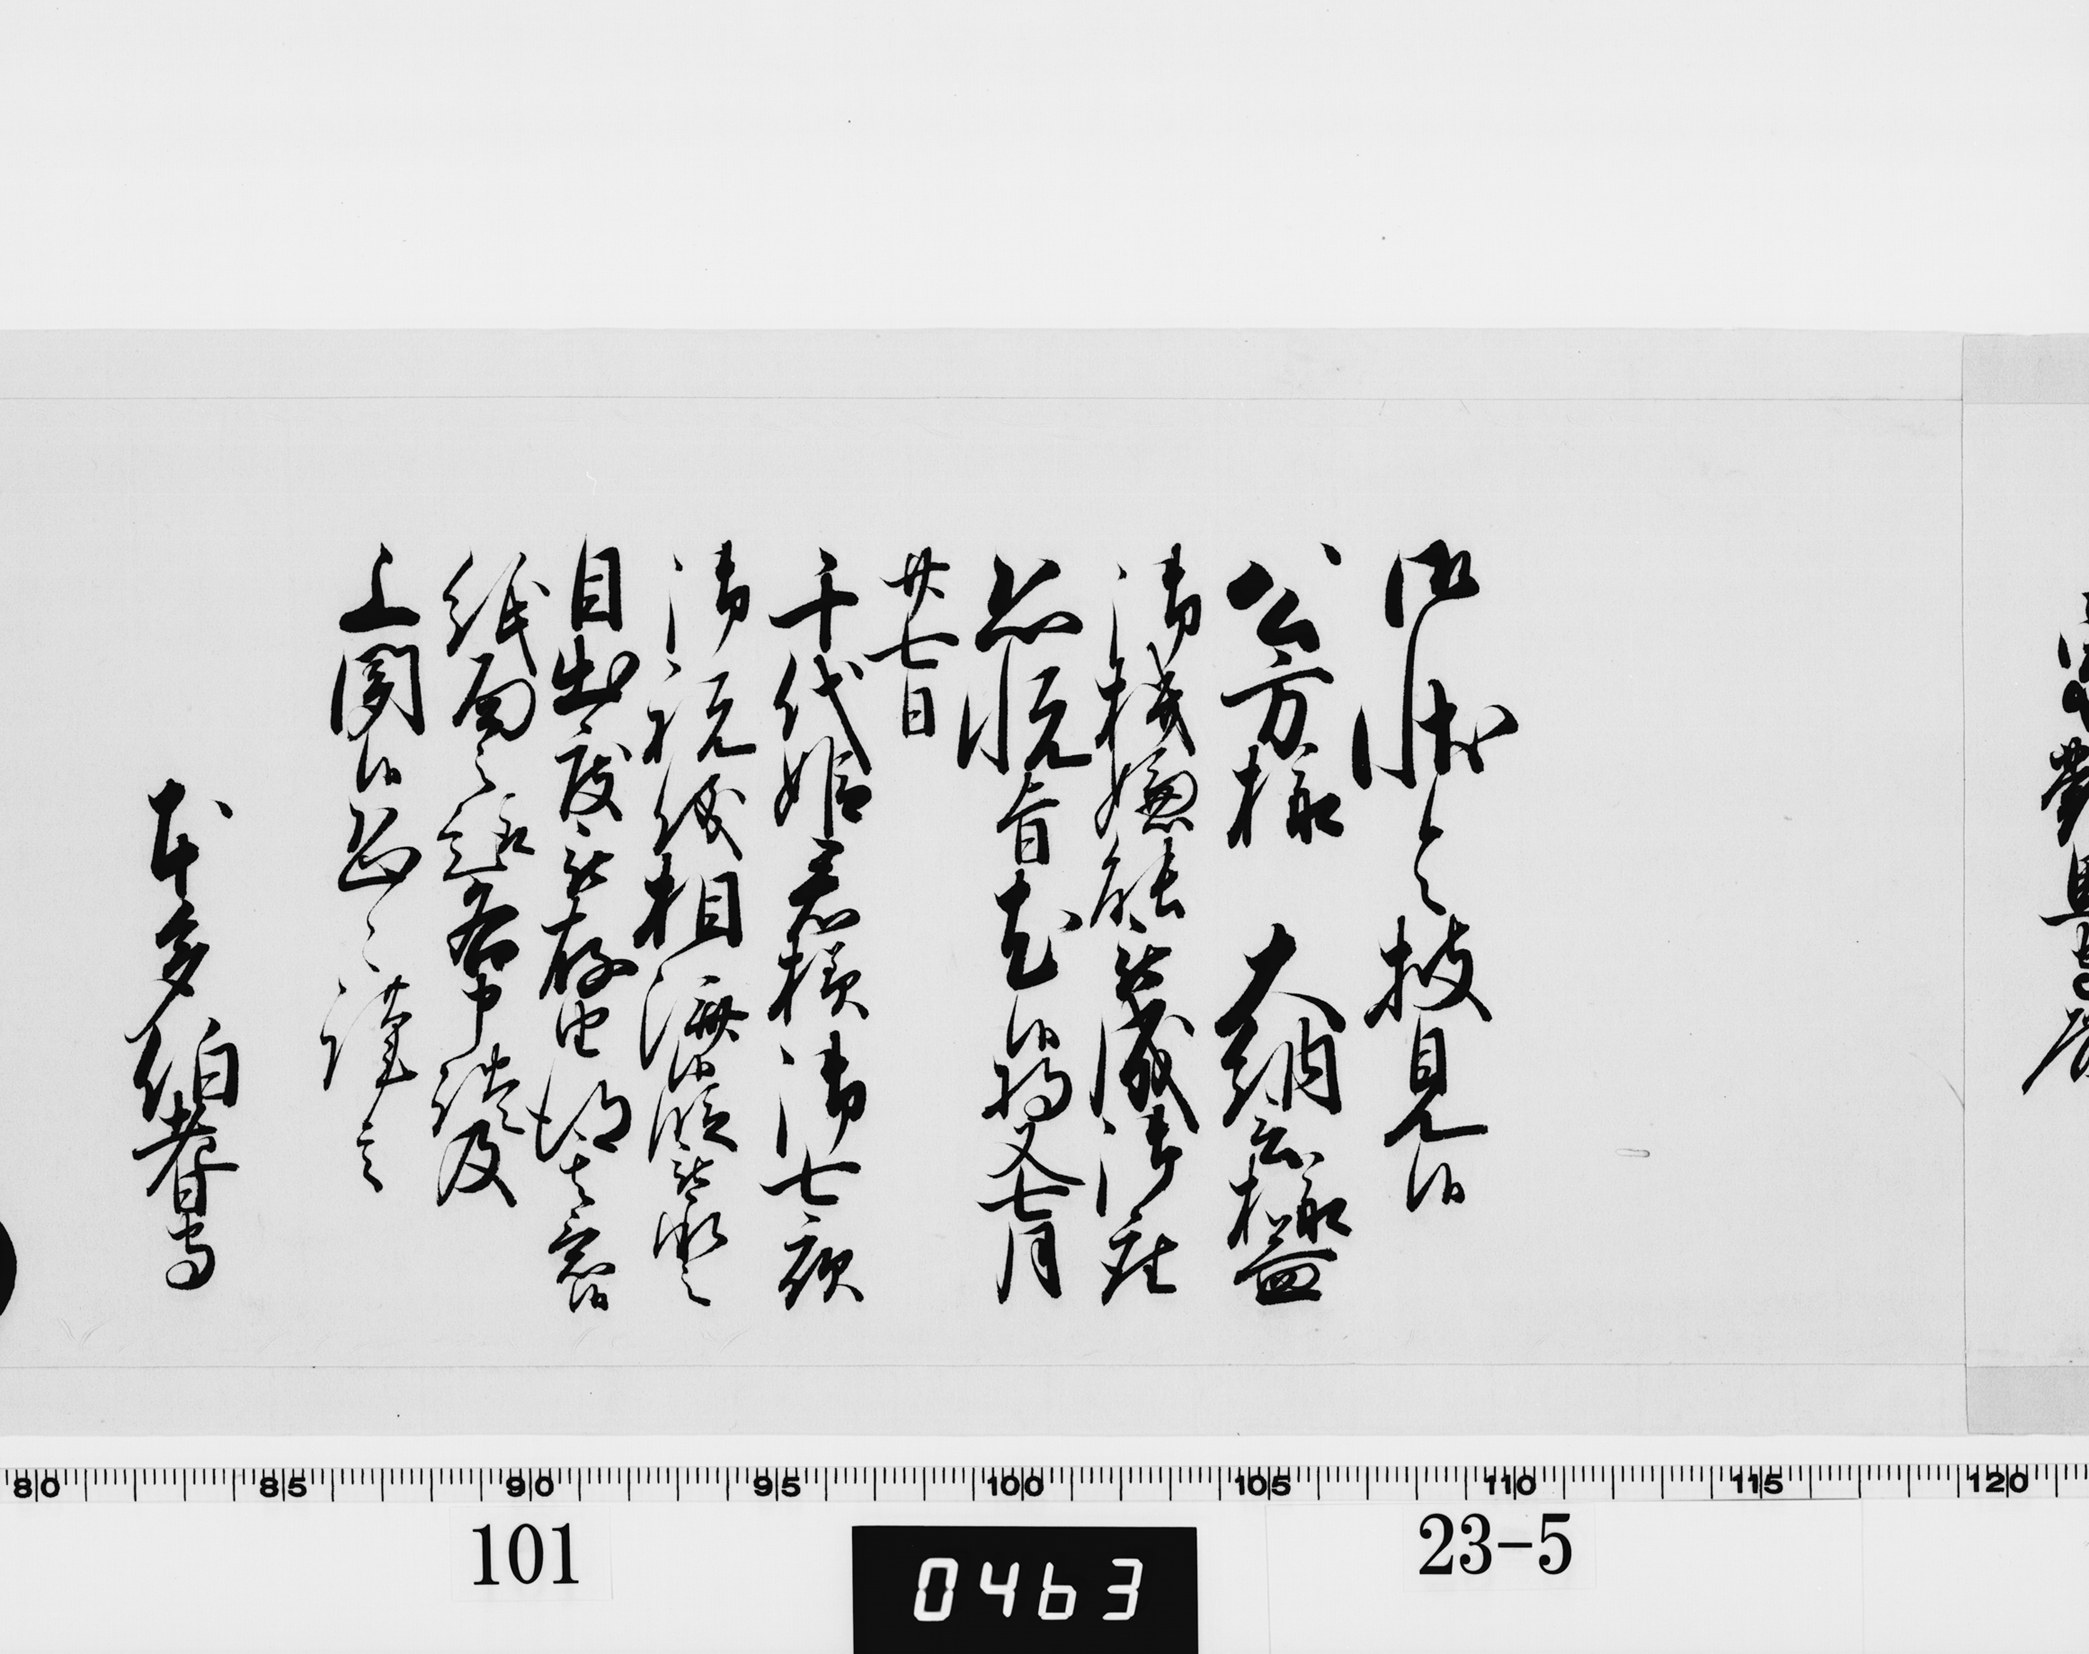 御状令披見候
公方様 大納言様益
御機嫌能被成御座
恐悦旨尤候将又七月
廿七日
千代姫君様御七夜
御祝儀相済候段被承之
目出度被存由得其意候
紙面之趣各申談及
上聞候恐々謹言
本多伯耆守
80 85 90 95 100 105 110 115 120
101
0463
23-5